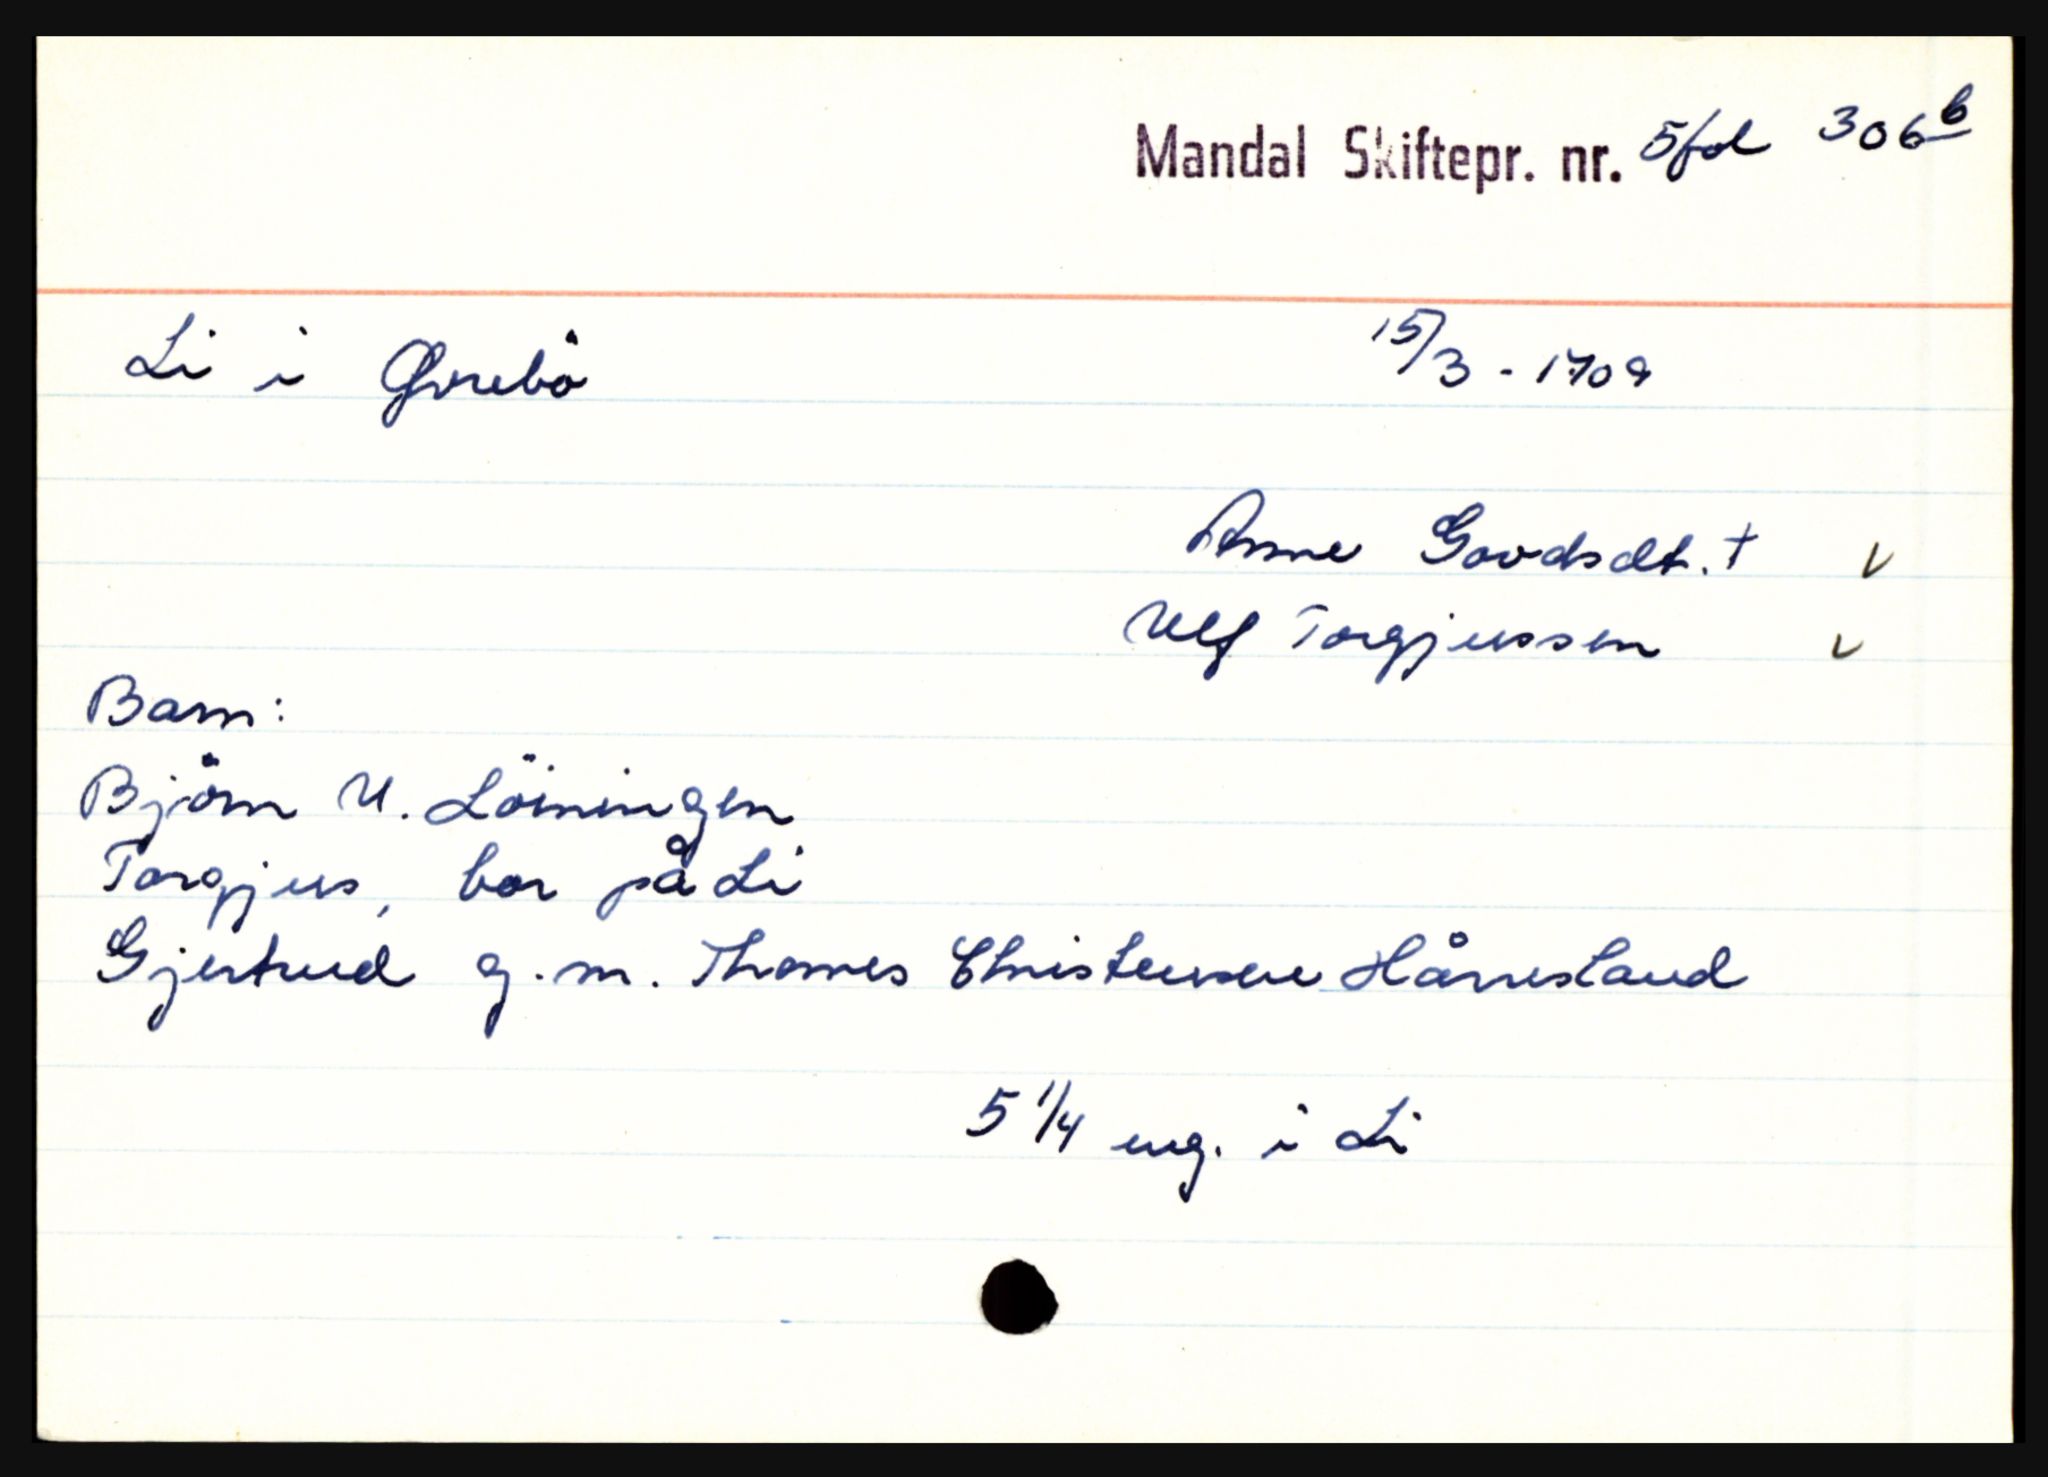 Mandal Skiftepr. nr. 5 fol 306 b
Li i Øvrebö 15/3 - 1709
Anne Govdsdt. † v
Ulf Torgjussen v
Barn:
Björn U. Löiningen
Torgjus, bor på Li
Gjertrud g. m. Thomes Christensen Hånesland
5 1/4 eng. i Li